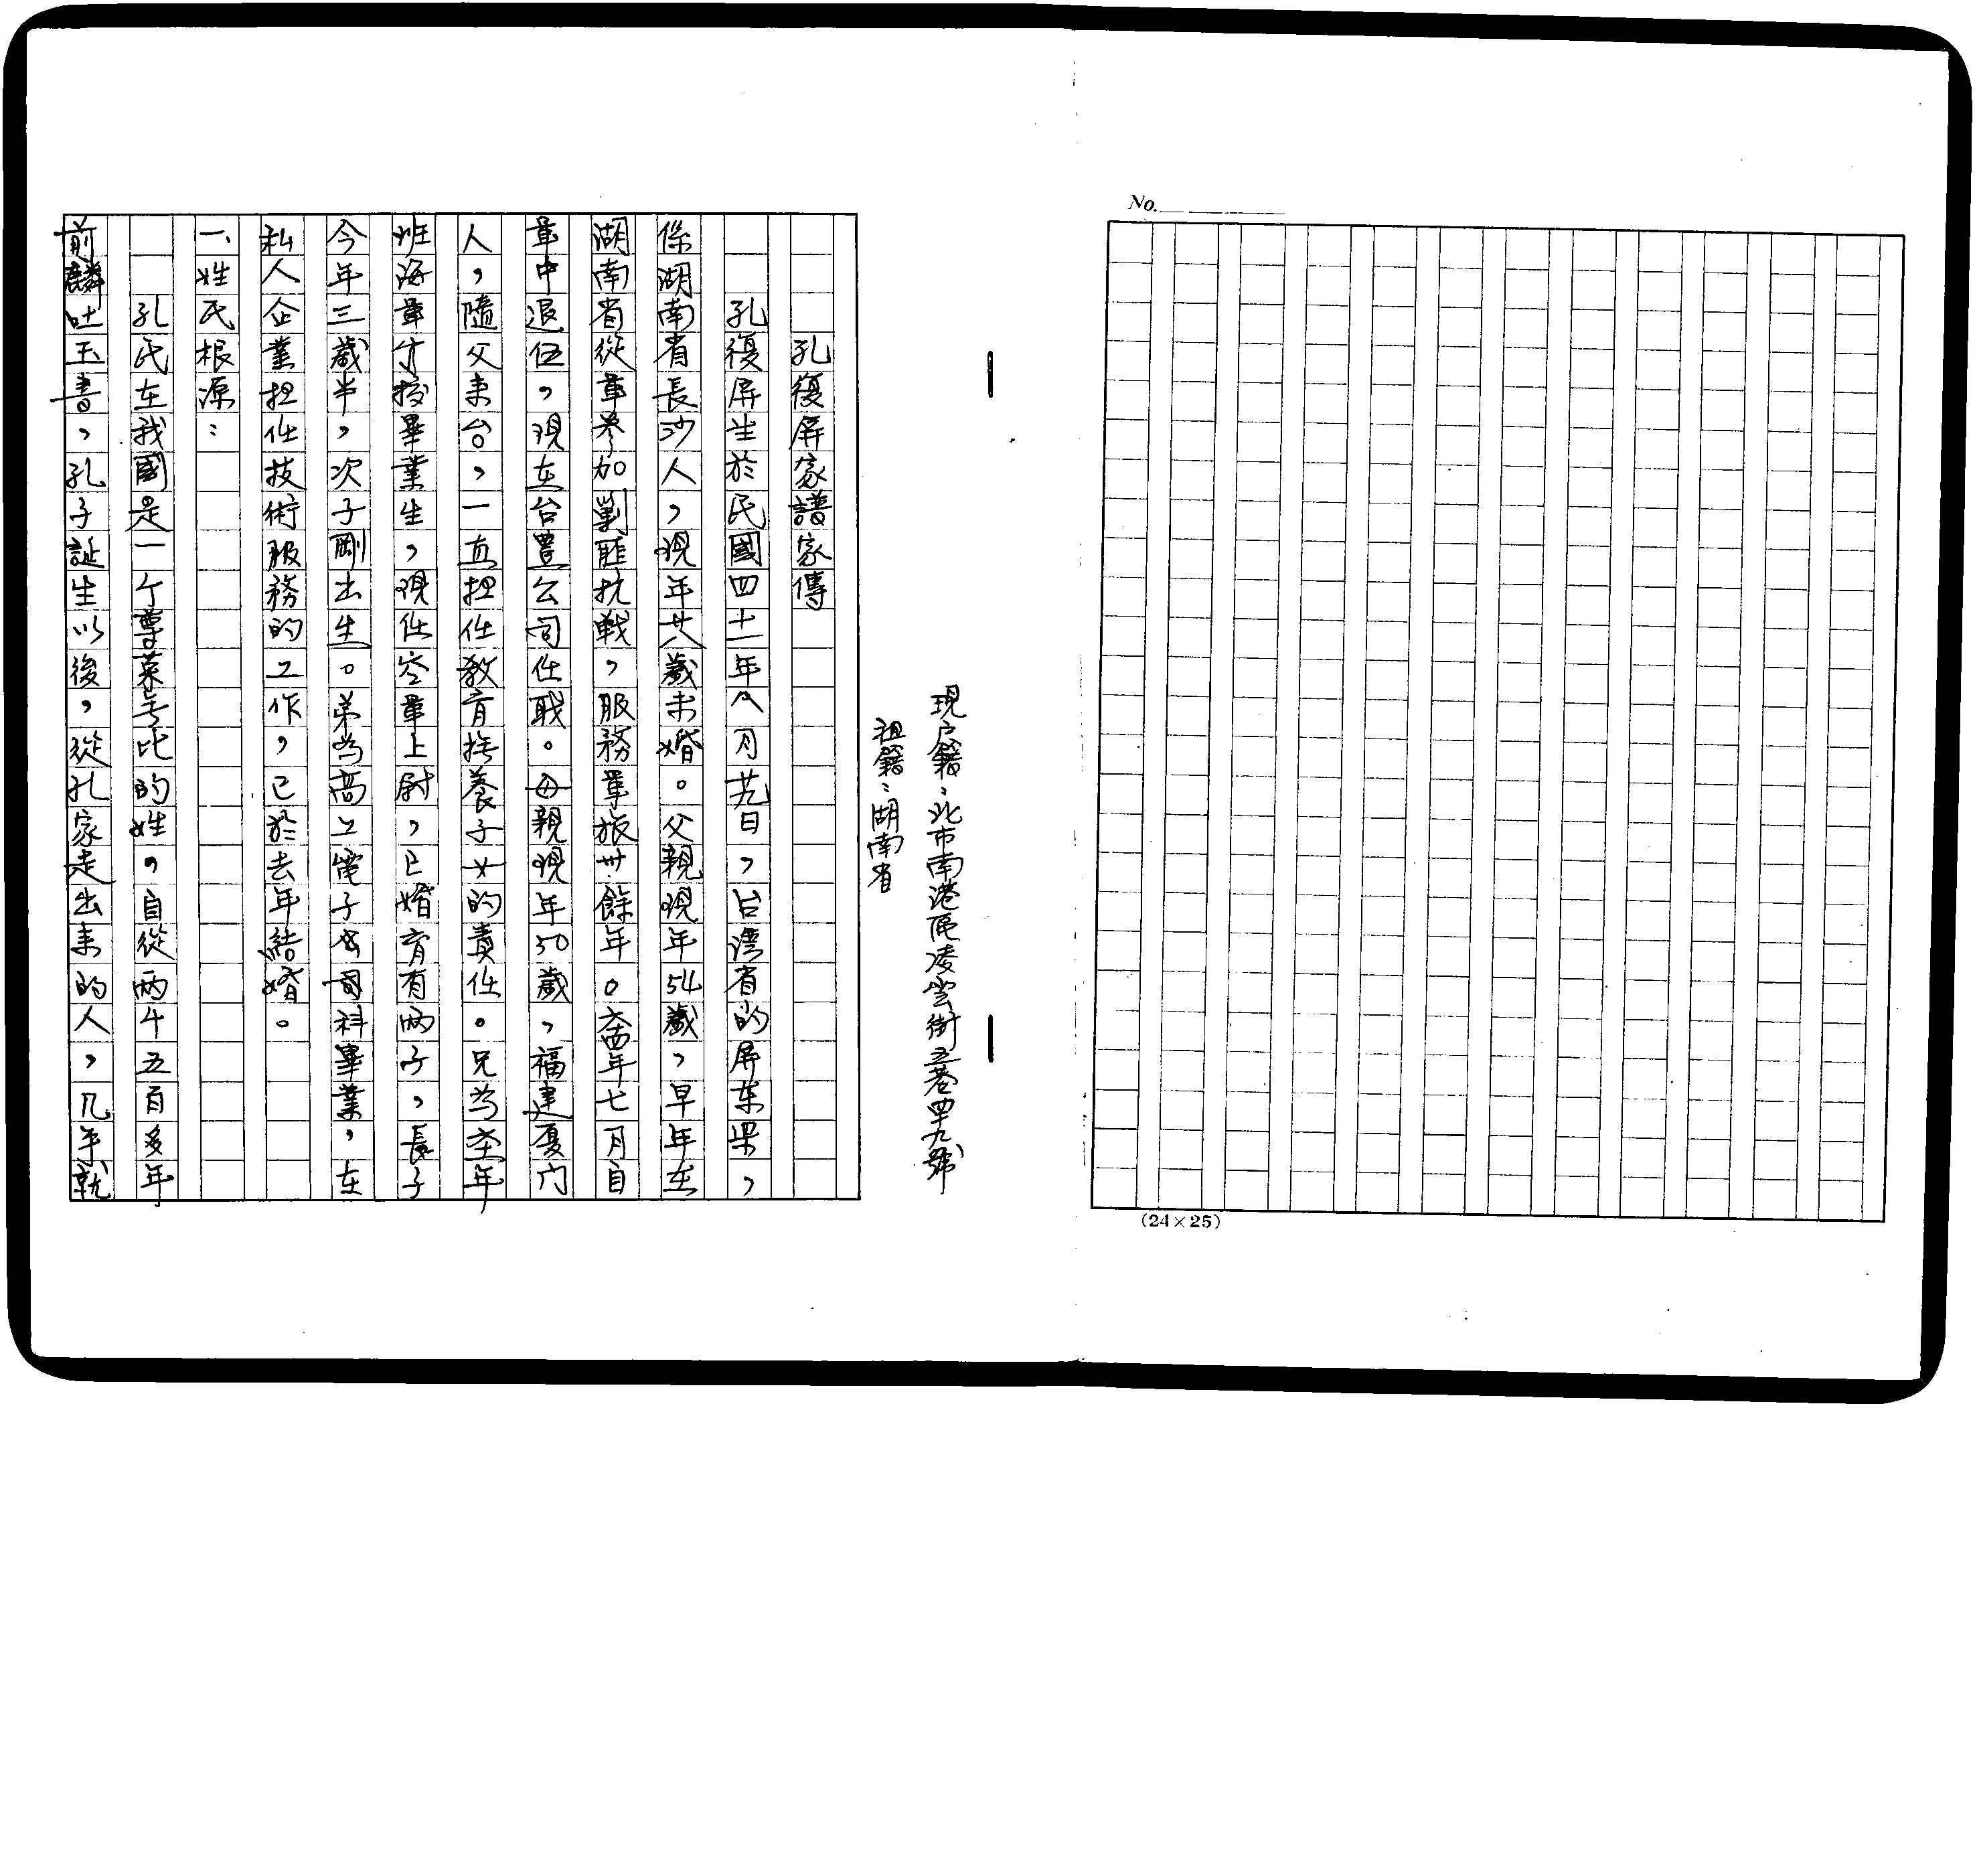 No.
(24×25)
現户籍：北市南港區凌雲街五巷四十九號
祖籍：湖南省
孔復屏家譜家傳
孔復屏生於民國四十一年八月廿九日，台湾省的屏東県，
係湖南省長沙人，現年廿八歲未婚。父親現年54歲，早年在
湖南省從軍參加剿匪抗戰，服務軍旅卅餘年。六四年七月自
軍中退伍，現在台豊公司任職。母親現年50歲，福建廈门
人，隨父来台，一直担任教育撫養子女的責任。兄為
班海軍官校畢業生，現任空軍上尉，已婚育有兩子，長子
今年三歲半，次子剛出生。弟為高工電子科畢業，在
私人企業担任技術服務的工作，已於去年結婚。
一、姓氏根源：
孔氏在我國是一个尊荣无比的姓，自從兩千五百多年
前麟吐玉書，孔子誕生以後，從孔家走出来的人，几乎就